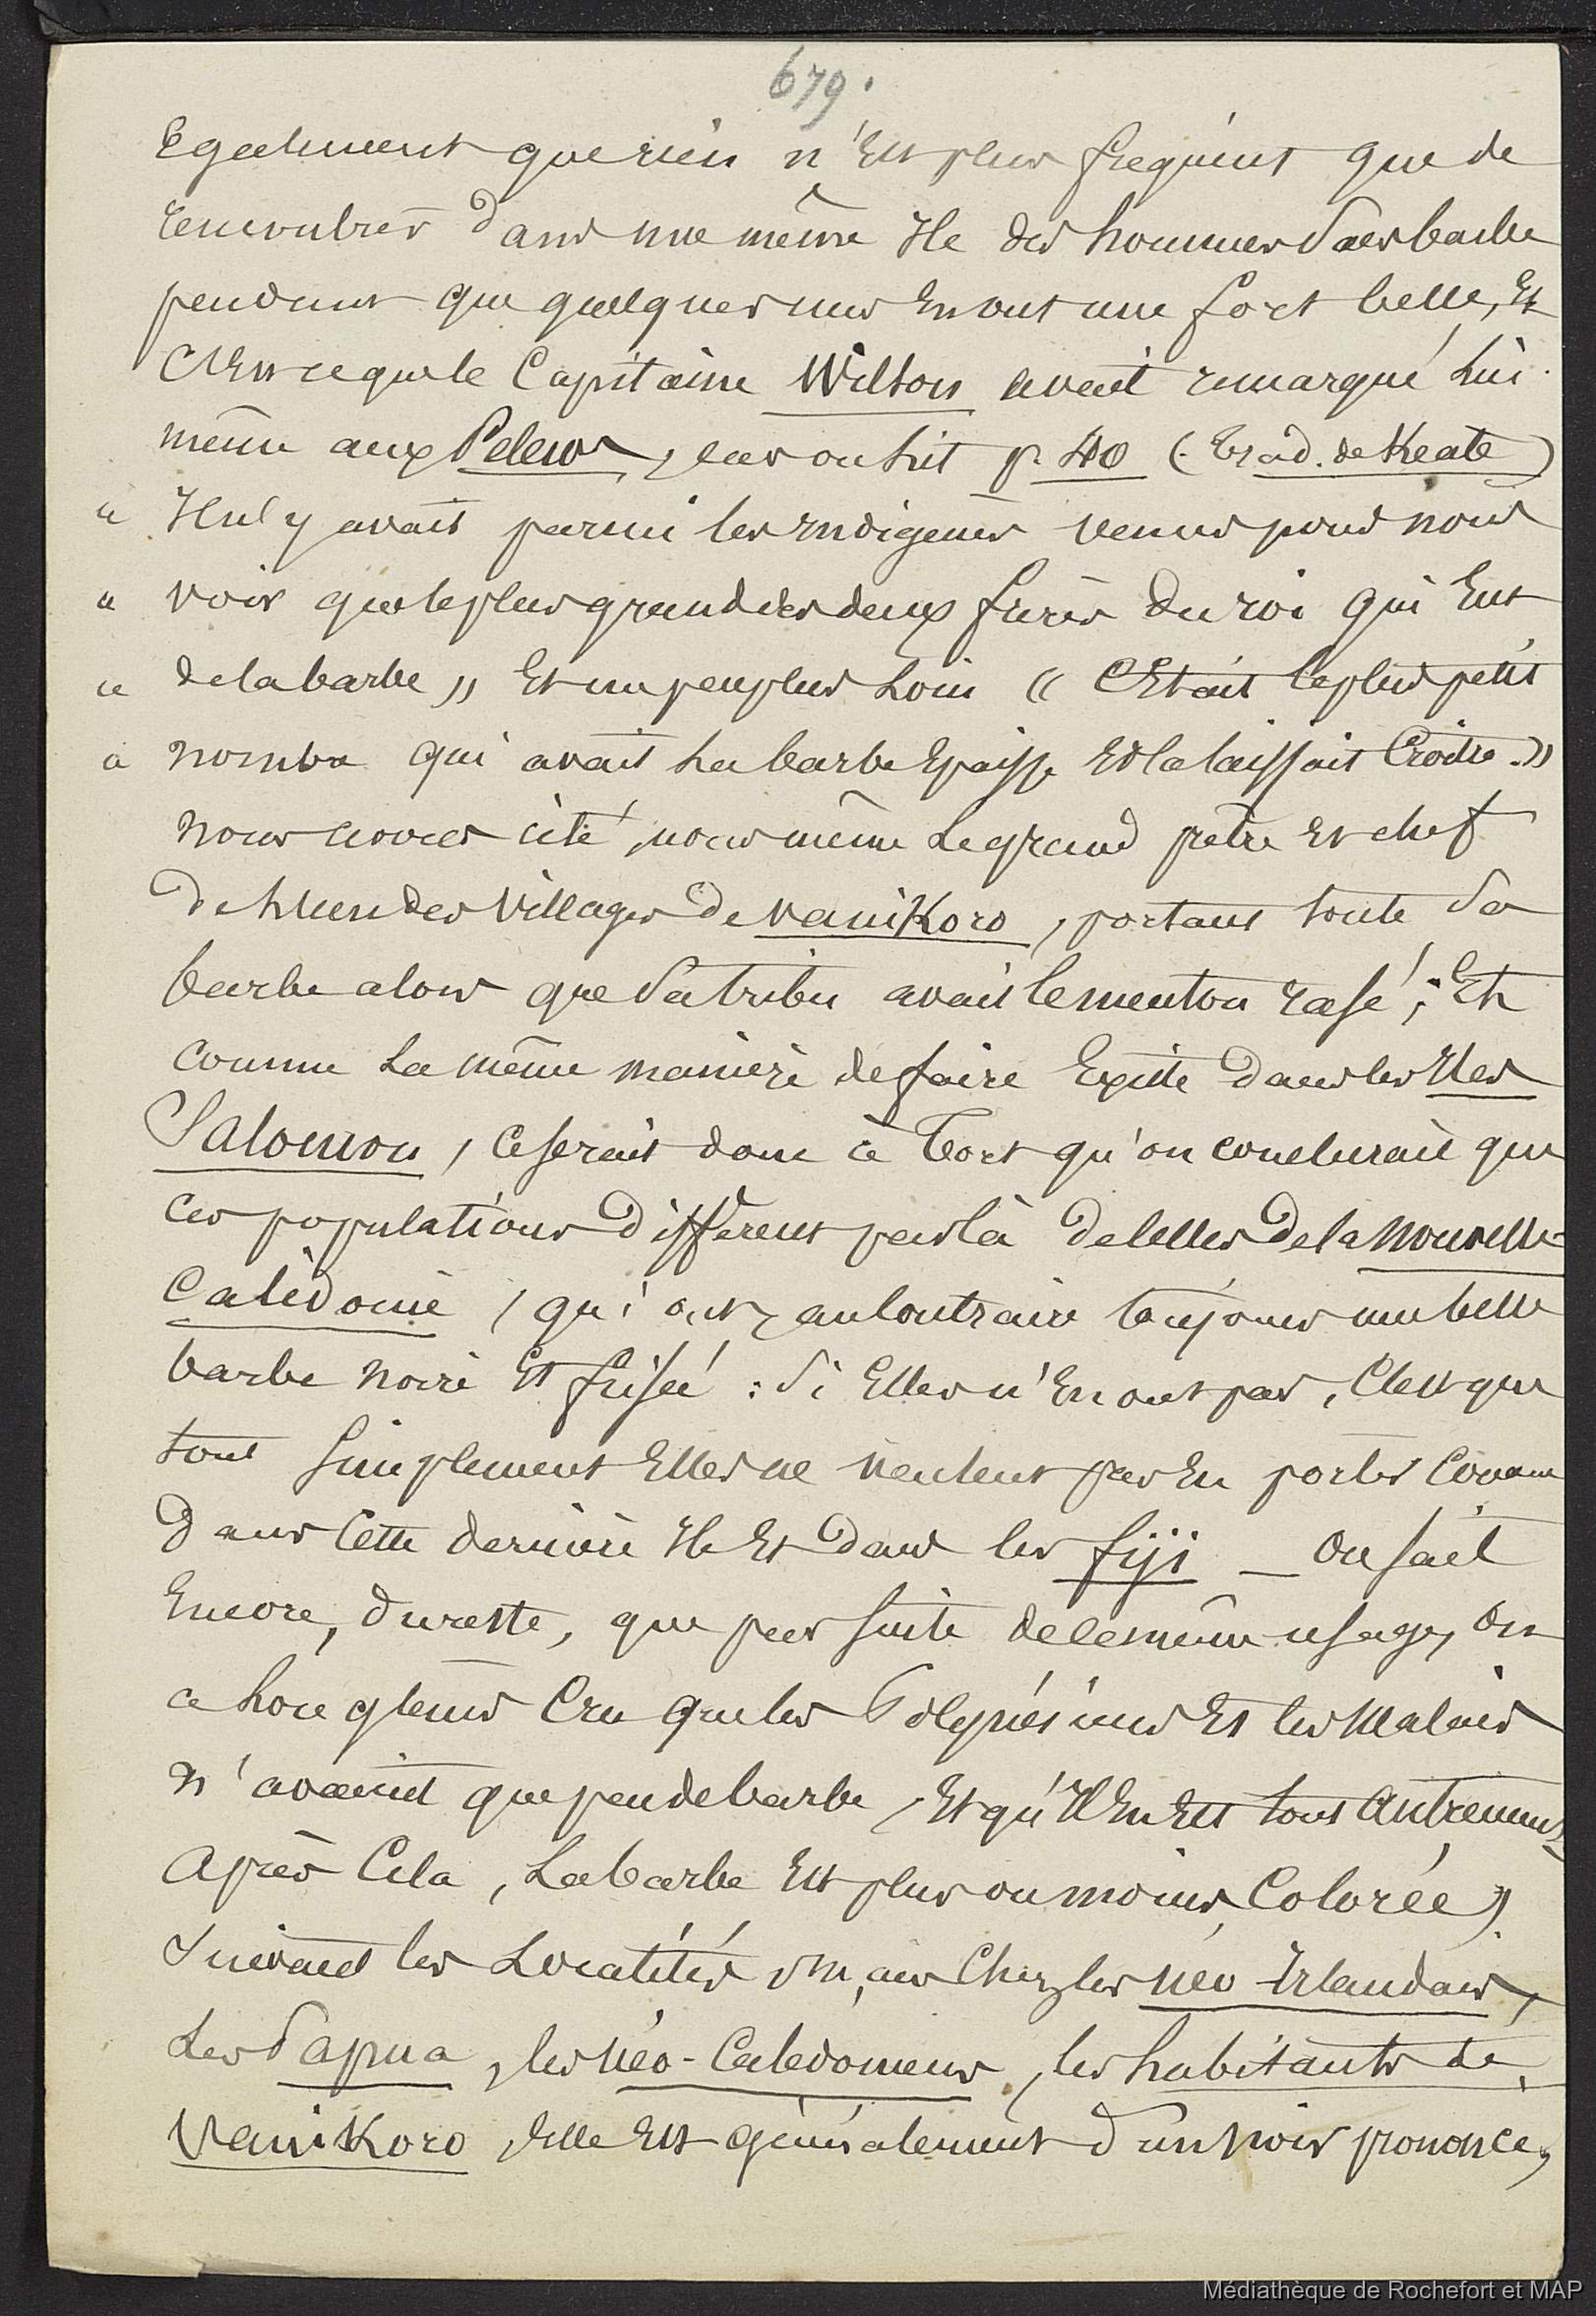 679.
Egalement que rien n'Est plus frequent que de
rencontrer dans une même Ile des hommes sans barbe
pendant que quelques uns En ont une fort belle, Et
C'Est ce que le Capitaine Wilson avait remarqué lui
même aux Pelew, car on lit p. 40 (Trad. de Keate)
" Il n'y avait parmi les indigenes venus pour nous
" voir que le plus grand des deux frères du roi qui Eut
" de la barbe » Et un peu plus loin « C'Etait le plus petit
" nombre qui avait la barbe Epaisse Et la laissait Croitre. »
nous avons cité, nous même le grand prêtre Et chef
de l'un des villages de Vanikoro, portant toute sa
barbe alors que sa tribu avait le menton rasé; Et
comme la même manière de faire Existe dans les Iles
Salomon, ce serait donc à tort qu'on conclurait que
ces populations diffèrent par là de celles de la Nouvelle-
Calédonie, qui ont, au contraire toujours une belle
barbe noire Et frisée : si Elles n'En ont pas, C'est que
tout simplement Elles ne veulent pas En porter Comme
dans Cette dernière Ile Et dans les fiji — On sait
Encore, du reste, que par suite de ce même usage, on
a longtems Cru que les Polynésiens Et les Malais
n'avaient que peu de barbe, Et qu'Il En Est tout Autrement
Après Cela, La barbe Est plus ou moins Colorée,
Suivant les Localités mais Chez les Néo-Irlandais,
Les Papua, les Néo-Calédoniens, les habitants de
Vanikoro, Elle Est généralement d'un noir prononcé,
Médiathèque de Rochefort et MAP